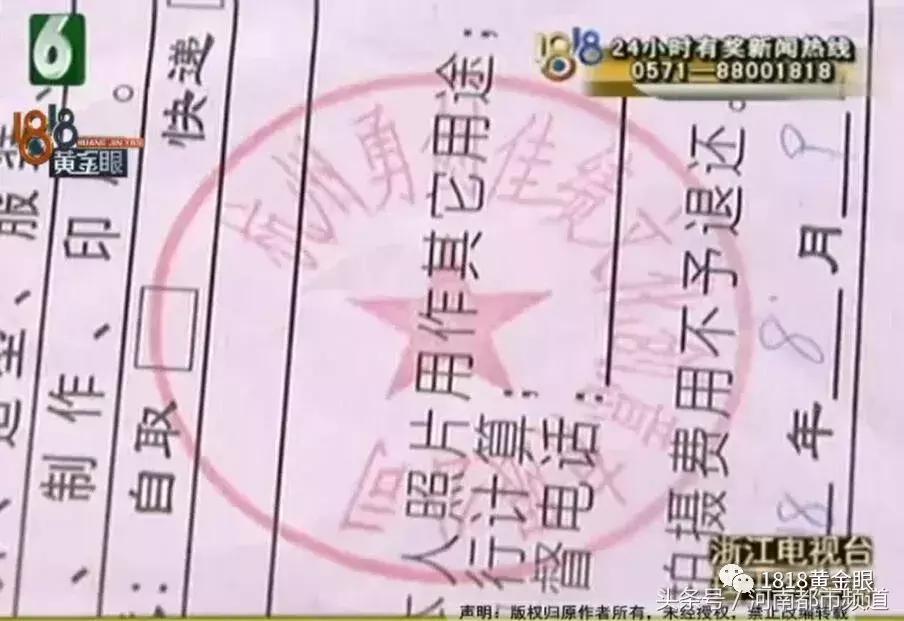 6
1818
HUANG JIN YAN
黄金眼
1818 24小时有奖新闻热线
0571—88001818
服装
制作、印
自取 □ 快递 □
人照片用作其它用途；
行计算；
督电话：
拍摄费用不予退还。
18年8月9
杭州勇 佳缘
浙江电视台
1818黄金眼
头条号/河南都市频道
声明：版权归原作者所有，未经授权，禁止改编转载